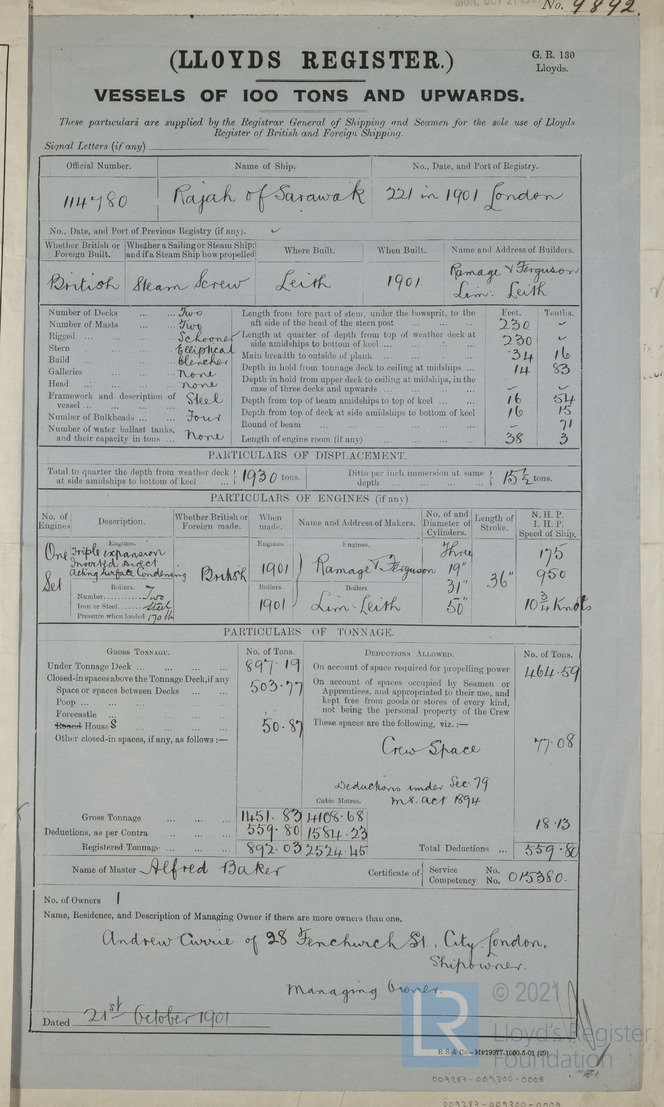 No. 9892.
(LLOYDS REGISTER.)
G. R. 130
Lloyds.
VESSELS OF 100 TONS AND UPWARDS.
These particulars are supplied by the Registrar General of Shipping and Seamen for the sole use of Lloyds
Register of British and Foreign Shipping.
Signal Letters (if any)
Official Number. Name of Ship. No., Date, and Port of Registry.
114780 Rajah of Sarawak 221 in 1901 London
No., Date, and Port of Previous Registry (if any).
Whether British or Foreign Built. Whether a Sailing or Steam Ship; and if a Steam Ship how propelled Where Built. When Built. Name and Address of Builders.
British Steam Screw Leith 1901. Ramage & Ferguson Lim. Leith
Number of Decks Two
Number of Masts Two
Rigged Schooner
Stern Elliptical
Build Clencher
Galleries None
Head none
Framework and description of vessel Steel
Number of Bulkheads Four
Number of water ballast tanks, and their capacity in tons None
Feet. Tenths.
Length from fore part of stem, under the bowsprit, to the aft side of the head of the stern post 230
Length at quarter of depth from top of weather deck at side amidships to bottom of keel 230
Main breadth to outside of plank 34 16
Depth in hold from tonnage deck to ceiling at midships 14 83
Depth in hold from upper deck to ceiling at midships, in the case of three decks and upwards
Depth from top of beam amidships to top of keel 16 54
Depth from top of deck at side amidships to bottom of keel 16 15
Round of beam 71
Length of engine room (if any) 38 3
PARTICULARS OF DISPLACEMENT.
Total to quarter the depth from weather deck at side amidships to bottom of keel 1930 tons. Ditto per inch immersion at same depth 15½ tons.
PARTICULARS OF ENGINES (if any).
No. of Engines. Description. Whether British or Foreign made. When made. Name and Address of Makers. No. of and Diameter of Cylinders. Length of Stroke. N. H. P. I. H. P. Speed of Ship.
One Set
Engines.
Triple expansion
Inverted Direct
Acting Surface Condensing
Boilers.
Number Two
Iron or Steel Steel
Pressure when loaded 170 lb
British
Engines. 1901
Boilers. 1901
Engines. Ramage & Ferguson
Boilers. Lim. Leith
Three
19"
31"
50"
36"
175
950
10¾ Knots
PARTICULARS OF TONNAGE.
GROSS TONNAGE. No. of Tons. DEDUCTIONS ALLOWED. No. of Tons.
Under Tonnage Deck 897.19
Closed-in spaces above the Tonnage Deck, if any
Space or spaces between Decks 503.77
Poop
Forecastle
Round Houses 50.87
Other closed-in spaces, if any, as follows :—
On account of space required for propelling power 464.59
On account of spaces occupied by Seamen or Apprentices, and appropriated to their use, and kept free from goods or stores of every kind, not being the personal property of the Crew
These spaces are the following, viz. :—
Crew Space 77.08
Deductions under Sec. 79
M.S. Act 1894 18.13
Cubic Metres.
Gross Tonnage 1451.83 4108.68
Deductions, as per Contra 559.80 1584.23
Registered Tonnage 892.03 2524.45
Total Deductions 559.80
Name of Master Alfred Baker Certificate of Service No. Competency No. 015380.
No. of Owners 1
Name, Residence, and Description of Managing Owner if there are more owners than one.
Andrew Currie of 28 Fenchurch St., City London,
Shipowner.
Managing Owner.
Dated 21st October 1901.
LR
© 2021
Lloyd's Register
Foundation
R S & Co—MP19977-1000-5-01 (29)
009287-009300-0009
009287-009300-0009